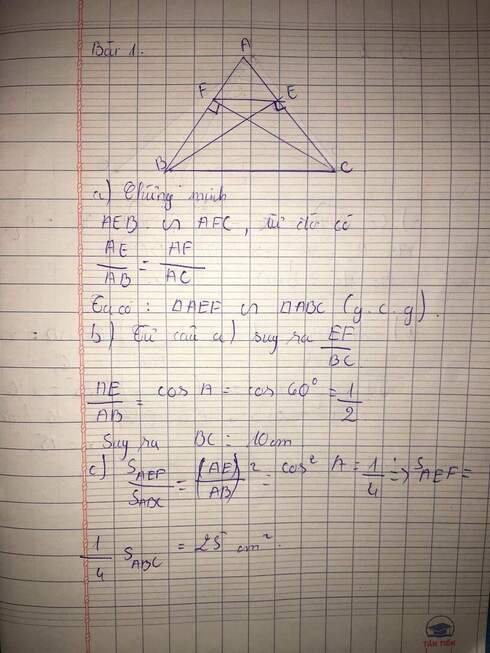 Bài 1.
A
F
E
B
C
a) Chứng minh
AEB ∽ AFC, từ đó có
AE/AB = AF/AC
Ta có: ΔAEF ∽ ΔABC (g.c.g).
b) Từ câu a) suy ra EF/BC
AE/AB = cos A = cos 60° = 1/2
Suy ra BC = 10cm
c) S_AEF/S_ABC = (AE)²/(AB) = cos² A = 1/4 => S_AEF =
1/4 S_ABC = 25 cm².
TÂN TIẾN